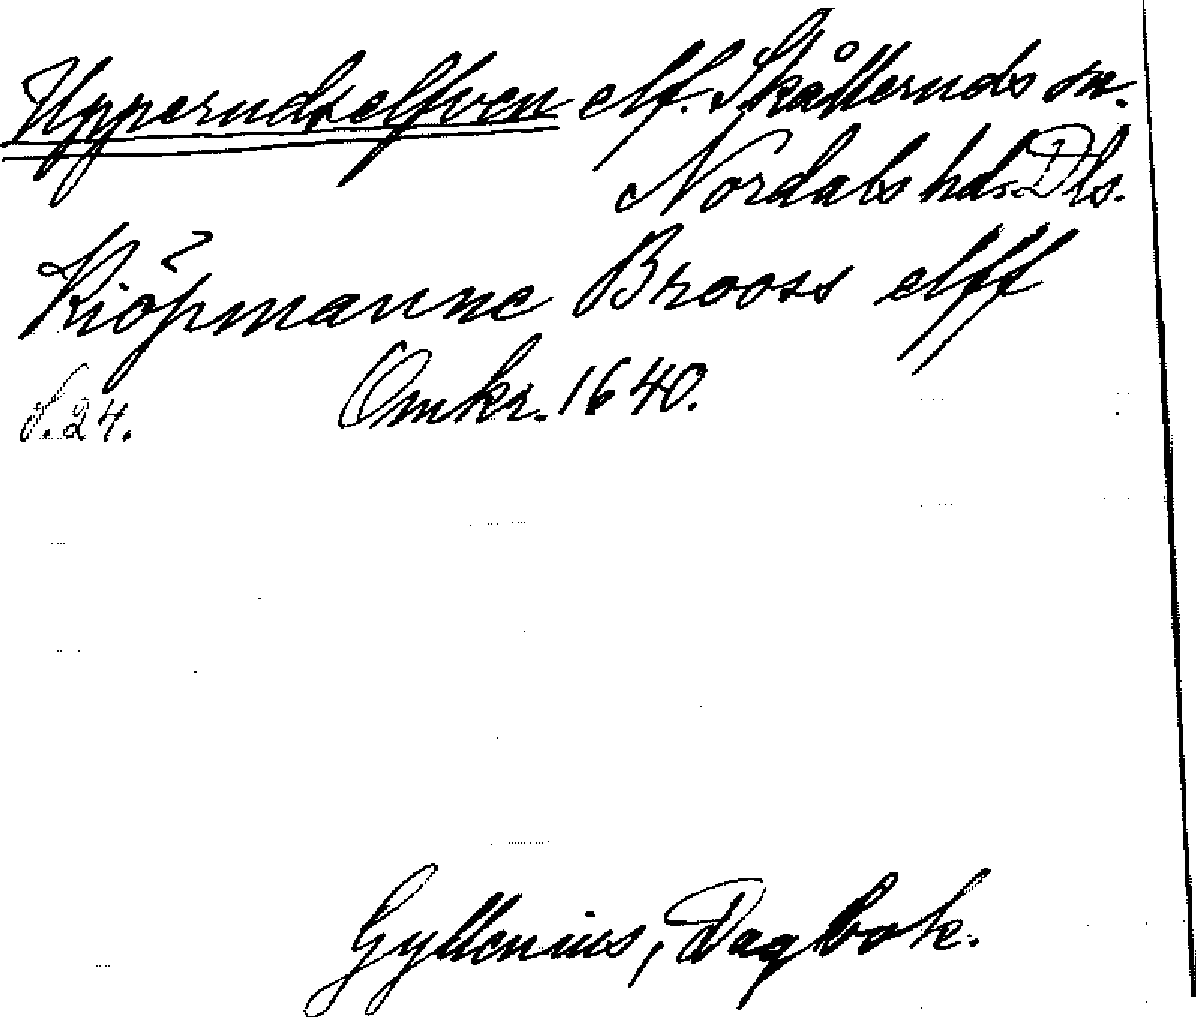 Upperudselfven elf. Skålleruds sn.
Nordals hd. Dls.
Kiöpmanne Brooss elff
s. 24. Omkr. 1640.
Gyllenius, Dagbok.